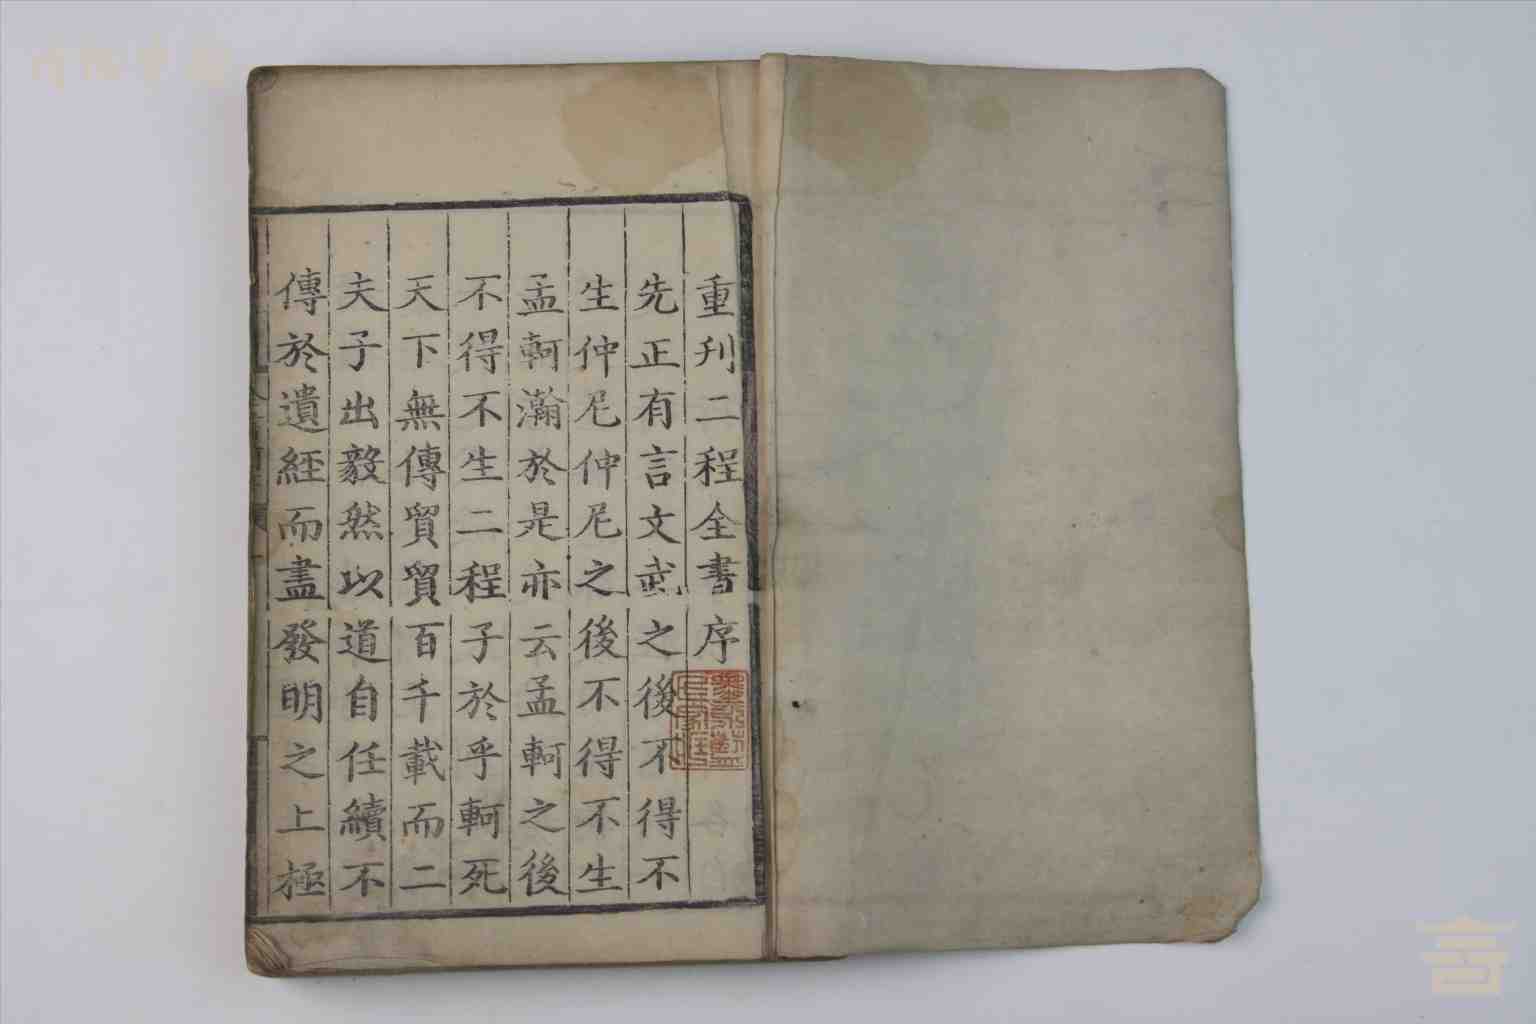 重刋二程全書序
先正有言文武之後不得不
生仲尼仲尼之後不得不生
孟軻瀚於是亦云孟軻之後
不得不生二程子於乎軻死
天下無傳貿貿百千載而二
夫子出毅然以道自任續不
傳於遺經而盡發明之上極